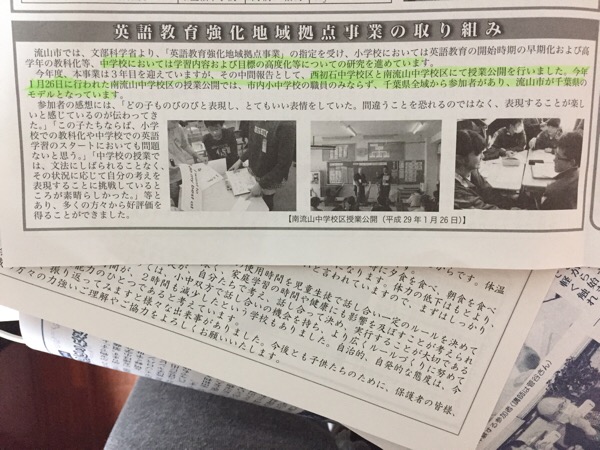 英語教育強化地域拠点事業の取り組み
流山市では、文部科学省より、「英語教育強化地域拠点事業」の指定を受け、小学校においては英語教育の開始時期の早期化および高
学年の教科化等、中学校においては学習内容および目標の高度化等についての研究を進めています。
今年度、本事業は３年目を迎えていますが、その中間報告として、西初石中学校区と南流山中学校区にて授業公開を行いました。今年
１月26日に行われた南流山中学校区の授業公開では、市内小中学校の職員のみならず、千葉県全域から参加者があり、流山市が千葉県の
モデルとなっています。
参加者の感想には、「どの子ものびのびと表現し、とてもいい表情をしていた。間違うことを恐れるのではなく、表現することが楽し
いと感じているのが伝わってき
た。」「この子たちならば、小学
校での教科化や中学校での英語
学習のスタートにおいても問題
ないと思う。」「中学校の授業で
は、文法にしばられることなく、
その状況に応じて自分の考えを
表現することに挑戦していると
ころが素晴らしかった。」等と
あり、多くの方々から好評価を
得ることができました。
【南流山中学校区授業公開（平成 29 年 1 月 26 日）】
使用時間を児童生徒で話し合い一定のルールを決めて
家庭学習の時間や健康にも影響を及ぼすことが考えられ
自分たちで考え、話し合って決め、実行することが大切である
では、小中双方で話し合いの機会を持ち、より広くルールづくりに努めて
２時間も減少したという学校もありました。自治的、自発的な態度は、今
能力のひとつであると考えています。
振り返ってみますと様々な出来事がありました。今後とも子供たちのために、保護者の皆様、
方々の力強いご理解やご協力をよろしくお願いいたします。